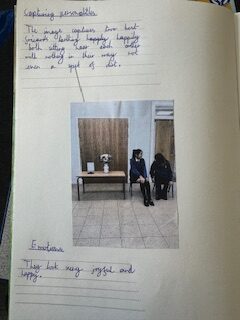 Capturing personalities
The image captures two best
friends looking happily
both sitting near each other
with nothing in their way not
even a spot of dirt.
Emotions
They look very joyful and
happy.